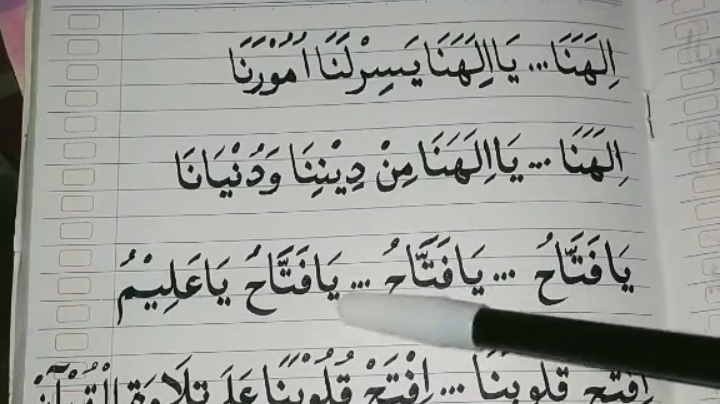 اِلَهَنَا... يَااِلَهَنَا يَسِرْلَنَا اُمُوْرَنَا
اِلَهَنَا... يَااِلَهَنَا مِنْ دِيْنِنَا وَدُنْيَانَا
يَافَتَّاحُ ... يَافَتَّاحُ ... يَافَتَّاحُ يَاعَلِيْمُ
اِفْتَحْ قُلُوْبَنَا ... اِفْتَحْ قُلُوْبَنَا عَلَى تِلَاوَةِ الْقُرْآنْ